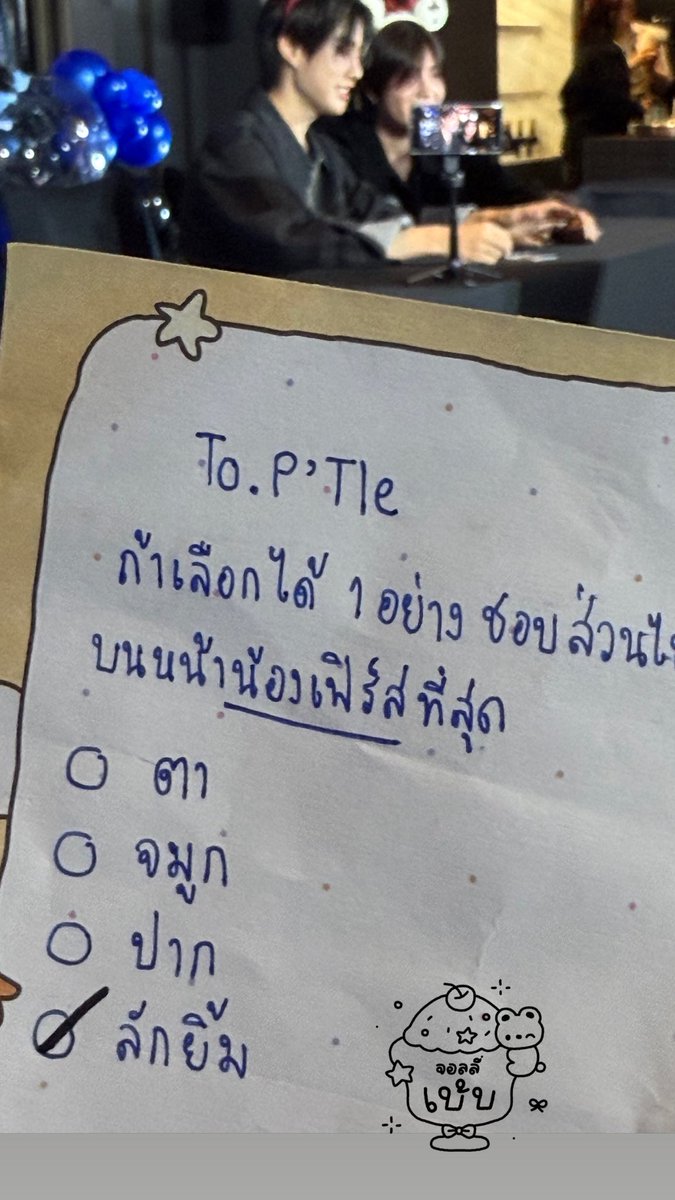 To. P'Tle
ถ้าเลือกได้ 1 อย่าง ชอบส่วน
บนหน้าน้องเฟิร์สที่สุด
ตา
จมูก
ปาก
ลักยิ้ม
จอลลี่
เบ้บ